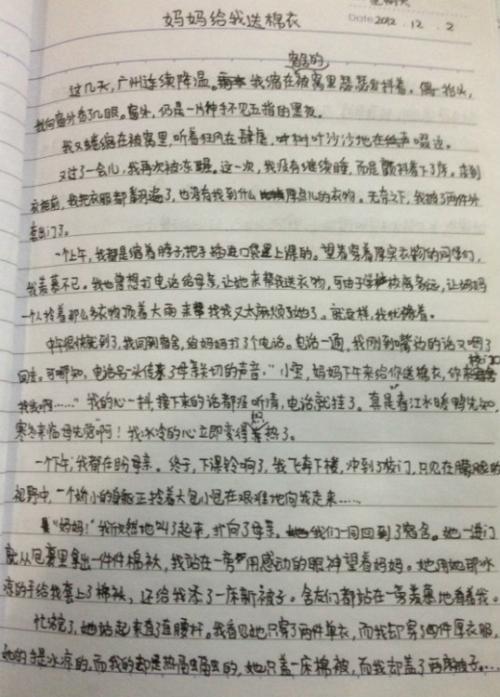 星期六
妈妈给我送棉衣
Date 2012 . 12 . 2
宿舍的
这几天,广州连续降温。我缩在被窝里瑟瑟发抖着。偶一抬头,
我向窗外看了几眼。窗外,仍是一片伸手不见五指的黑夜。
我又蜷缩在被窝里,听着狂风在肆虐,听树叶沙沙地在啜泣。
又过了一会儿,我再次被冻醒。这一次,我没有继续睡,而是颤抖着下了床。来到
衣柜前,我把衣服都翻遍了,也没有找到什么厚点儿的衣物。无奈之下,我披了两件外
套出门了。
一个上午,我都是缩着脖子把手插进口袋里上课的。望着穿着厚实衣物的同学们,
我羡慕不已。我也曾想打电话给母亲,让她来帮我送衣物,可由于学校离家远,让妈妈
一个人拎着那么多衣物顶着大雨来帮我我又太麻烦了她了。就这样,我犹豫着。
中午很快就到了,我回到宿舍,给妈妈打了个电话。电话一通,我刚到嘴边的话又咽了
回去。可哪知,电话另一头传来了母亲关切的声音:“小雪,妈妈下午来给你送棉衣,你来校门口
接我啊……”我的心一抖,接下来的话都没听清,电话就挂了。真是春江水暖鸭先知,
寒冬来临母先觉啊!我冰冷的心立即变得热了。
一个下午,我都在盼母亲。终于,下课铃响了,我飞奔下楼,冲到了校门,只见在朦胧的
视野中,一个娇小的身躯正拎着大包小包在艰难地向我走来……
“妈妈!”我欣喜地叫了起来,扑向了母亲。我们一同回到了宿舍。她一进门
就从包裹里拿出一件件棉袄,我站在一旁用感动的眼神望着妈妈。她用她那冰
凉的手给我套上了棉袄,还给我添了一床新被子。舍友们都站在一旁羡慕地看着我。
忙完了,她站起来直了直腰杆。我看见她只穿了两件单衣,而我却穿了四件厚衣服,
她的手是冰凉的,而我的却是热乎乎的,她只盖一床棉被,而我却盖了两床被子。…